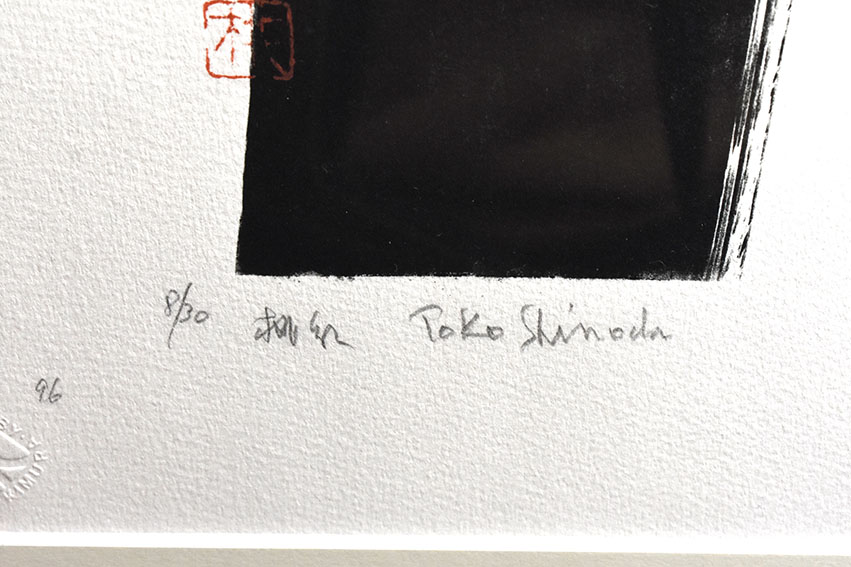 8/30 桃紅 Toko Shinoda
96
KIMUR